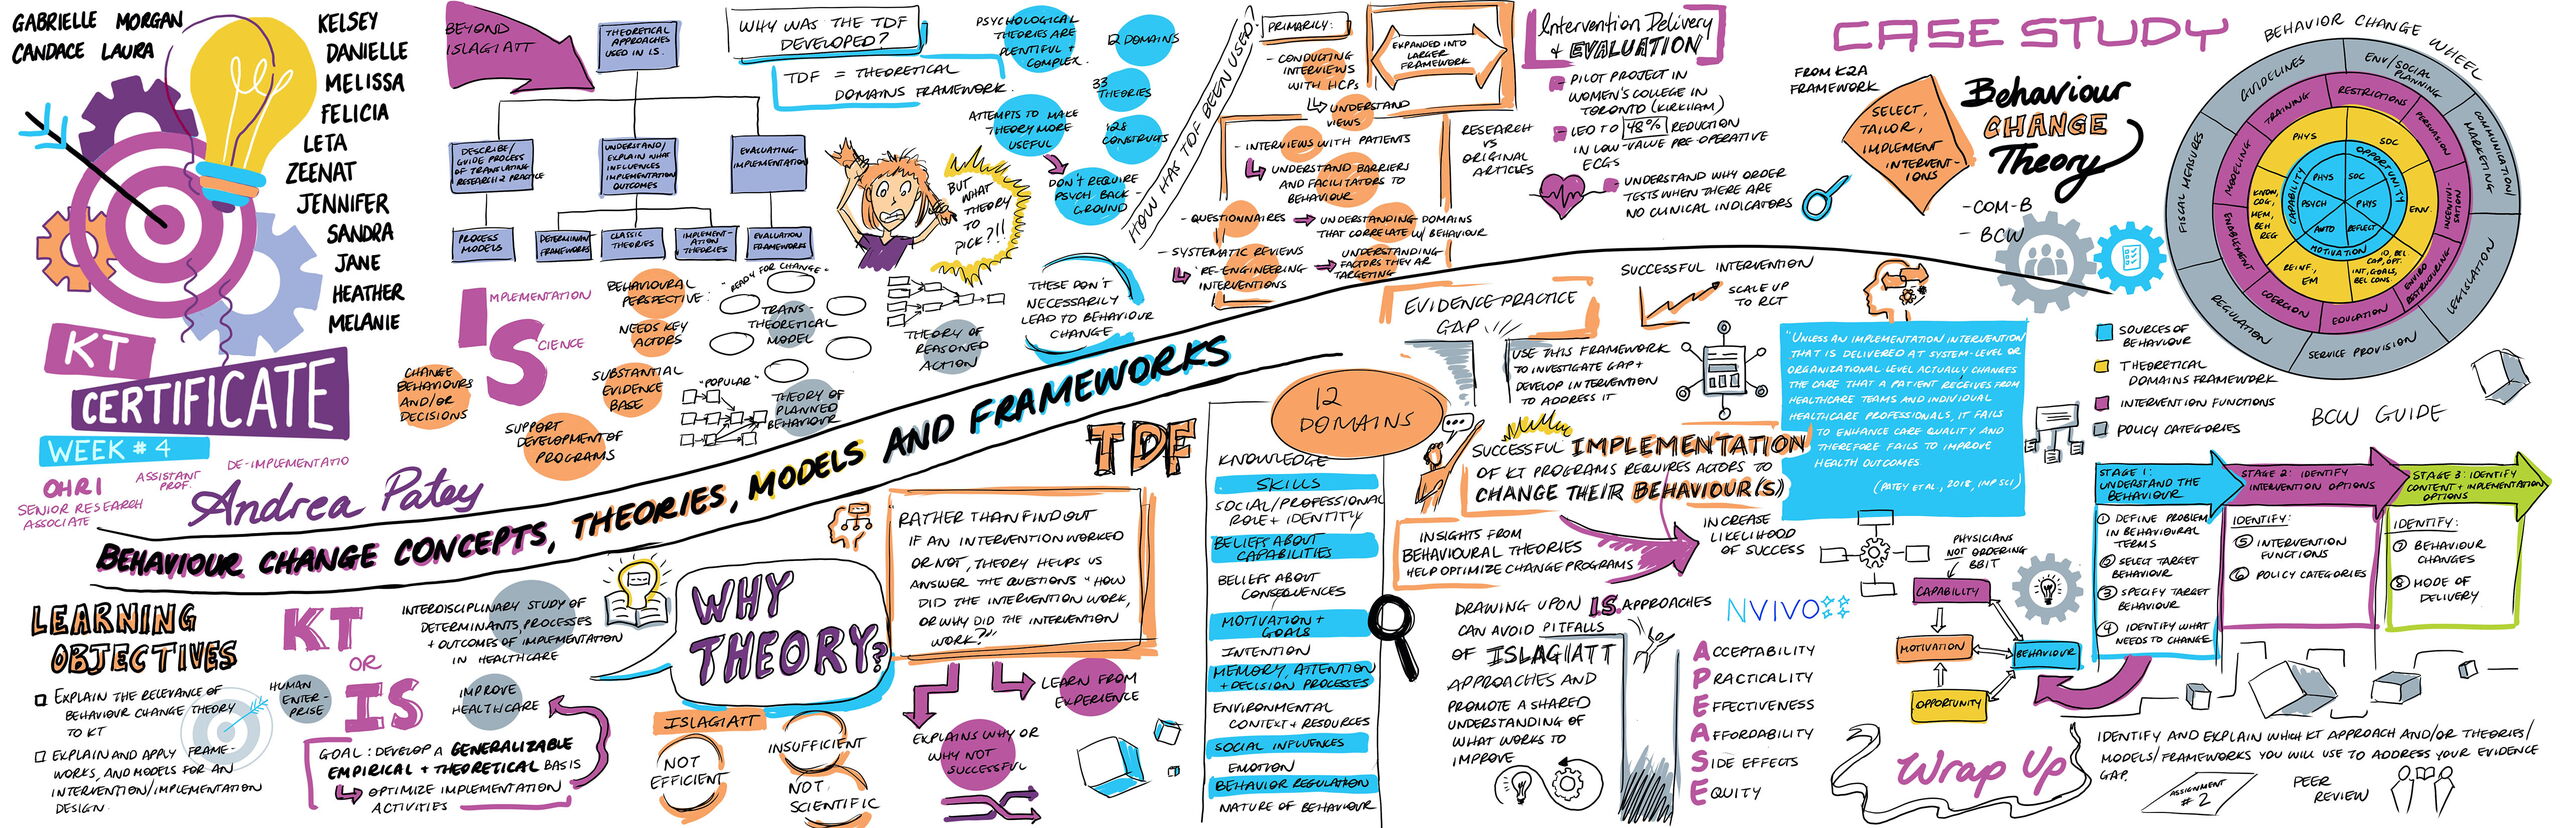 GABRIELLE MORGAN
CANDACE LAURA
KELSEY
DANIELLE
MELISSA
FELICIA
LETA
ZEENAT
JENNIFER
SANDRA
JANE
HEATHER
MELANIE
KT
CERTIFICATE
WEEK # 4
DE-IMPLEMENTATIO
ASSISTANT
PROF.
OHRI
SENIOR RESEARCH
ASSOCIATE
Andrea Patey
BEHAVIOUR CHANGE CONCEPTS, THEORIES, MODELS AND FRAMEWORKS
BEYOND
ISLAGIATT
THEORETICAL
APPROACHES
USED IN I.S.
DESCRIBE/
GUIDE PROCESS
OF TRANSLATING
RESEARCH 2 PRACTICE
UNDERSTAND/
EXPLAIN WHAT
INFLUENCES
IMPLEMENTATION
OUTCOMES
EVALUATING
IMPLEMENTATION
PROCESS
MODELS
DETERMINANT
FRAMEWORKS
CLASSIC
THEORIES
IMPLEMENT-
ATION
THEORIES
EVALUATION
FRAMEWORKS
IMPLEMENTATION
SCIENCE
CHANGE
BEHAVIOURS
AND/OR
DECISIONS
BEHAVIOURAL
PERSPECTIVE:
NEEDS KEY
ACTORS
SUBSTANTIAL
EVIDENCE
BASE
SUPPORT
DEVELOPMENT OF
PROGRAMS
"READY FOR CHANGE"
TRANS-
THEORETICAL
MODEL
"POPULAR"
THEORY OF
PLANNED
BEHAVIOUR
THEORY OF
REASONED
ACTION
THESE DON'T
NECESSARILY
LEAD TO BEHAVIOUR
CHANGE
WHY WAS THE TDF
DEVELOPED?
TDF = THEORETICAL
DOMAINS FRAMEWORK.
BUT
WHAT
THEORY
TO
PICK?!!
PSYCHOLOGICAL
THEORIES ARE
PLENTIFUL +
COMPLEX.
ATTEMPTS TO MAKE
THEORY MORE
USEFUL
DON'T REQUIRE
PSYCH BACK-
GROUND
12 DOMAINS
33
THEORIES
128
CONSTRUCTS
HOW HAS TDF BEEN USED?
PRIMARILY:
- CONDUCTING
INTERVIEWS
WITH HCPs
UNDERSTAND
VIEWS
EXPANDED INTO
LARGER
FRAMEWORK
- INTERVIEWS WITH PATIENTS
UNDERSTAND BARRIERS
AND FACILITATORS TO
BEHAVIOUR
- QUESTIONNAIRES
UNDERSTANDING DOMAINS
THAT CORRELATE W/ BEHAVIOUR
- SYSTEMATIC REVIEWS
RE-ENGINEERING
INTERVENTIONS
UNDERSTANDING
FACTORS THEY AR
TARGETING
RESEARCH
VS
ORIGINAL
ARTICLES
Intervention Delivery
+ EVALUATION
- PILOT PROJECT IN
WOMEN'S COLLEGE IN
TORONTO (KIRKHAM)
- LED TO 48% REDUCTION
IN LOW-VALUE PRE-OPERATIVE
ECGS
- UNDERSTAND WHY ORDER
TESTS WHEN THERE ARE
NO CLINICAL INDICATORS
CASE STUDY
FROM K2A
FRAMEWORK
SELECT,
TAILOR,
IMPLEMENT
INTERVENT-
IONS
Behaviour
CHANGE
Theory
- COM-B
- BCW
BEHAVIOR CHANGE WHEEL
GUIDELINES
ENV/SOCIAL
PLANNING
COMMUNICATION/
MARKETING
LEGISLATION
SERVICE PROVISION
REGULATION
FISCAL MEASURES
TRAINING
RESTRICTIONS
PERSUASION
INCENTIVI-
SATION
ENVIRO
RESTRUCTURING
EDUCATION
COERCION
ENABLEMENT
MODELING
PHYS
SOC
ENV.
ID, BEL
CAP, OPT.
INT, GOALS,
BEL CONS.
REINF,
EM
KNOW,
COG,
MEM,
BEH
REG
CAPABILITY
OPPORTUNITY
MOTIVATION
PHYS
SOC
PSYCH
PHYS
AUTO
REFLECT
SOURCES OF
BEHAVIOUR
THEORETICAL
DOMAINS FRAMEWORK
INTERVENTION FUNCTIONS
POLICY CATEGORIES
BCW GUIDE
LEARNING
OBJECTIVES
EXPLAIN THE RELEVANCE OF
BEHAVIOUR CHANGE THEORY
TO KT
EXPLAIN AND APPLY FRAME-
WORKS, AND MODELS FOR AN
INTERVENTION/IMPLEMENTATION
DESIGN
KT
OR
IS
INTERDISCIPLINARY STUDY OF
DETERMINANTS, PROCESSES
+ OUTCOMES OF IMPLEMENTATION
IN HEALTHCARE
HUMAN
ENTER-
PRISE
IMPROVE
HEALTHCARE
GOAL: DEVELOP A GENERALIZABLE
EMPIRICAL + THEORETICAL BASIS
OPTIMIZE IMPLEMENTATION
ACTIVITIES
WHY
THEORY?
ISLAGIATT
NOT
EFFICIENT
INSUFFICIENT
NOT
SCIENTIFIC
"RATHER THAN FIND OUT
IF AN INTERVENTION WORKED
OR NOT, THEORY HELPS US
ANSWER THE QUESTIONS "HOW
DID THE INTERVENTION WORK,
OR WHY DID THE INTERVENTION
WORK?"
LEARN FROM
EXPERIENCE
EXPLAINS WHY OR
WHY NOT
SUCCESSFUL
TDF
12
DOMAINS
KNOWLEDGE
SKILLS
SOCIAL/PROFESSIONAL
ROLE + IDENTITY
BELIEFS ABOUT
CAPABILITIES
BELIEFS ABOUT
CONSEQUENCES
MOTIVATION +
GOALS
INTENTION
MEMORY, ATTENTION
+ DECISION PROCESSES
ENVIRONMENTAL
CONTEXT + RESOURCES
SOCIAL INFLUENCES
EMOTION
BEHAVIOR REGULATION
NATURE OF BEHAVIOUR
EVIDENCE PRACTICE
GAP
USE THIS FRAMEWORK
TO INVESTIGATE GAP +
DEVELOP INTERVENTION
TO ADDRESS IT
SUCCESSFUL INTERVENTION
SCALE UP
TO RCT
SUCCESSFUL IMPLEMENTATION
OF KT PROGRAMS REQUIRES ACTORS TO
CHANGE THEIR BEHAVIOUR(S)
INSIGHTS FROM
BEHAVIOURAL THEORIES
HELP OPTIMIZE CHANGE PROGRAMS
INCREASE
LIKELIHOOD
OF SUCCESS
"UNLESS AN IMPLEMENTATION INTERVENTION
THAT IS DELIVERED AT SYSTEM-LEVEL OR
ORGANIZATIONAL LEVEL ACTUALLY CHANGES
THE CARE THAT A PATIENT RECEIVES FROM
HEALTHCARE TEAMS AND INDIVIDUAL
HEALTHCARE PROFESSIONALS, IT FAILS
TO ENHANCE CARE QUALITY AND
THEREFORE FAILS TO IMPROVE
HEALTH OUTCOMES.
(PATEY ET AL., 2018, IMP SCI)
DRAWING UPON I.S. APPROACHES
CAN AVOID PITFALLS
OF ISLAGIATT
APPROACHES AND
PROMOTE A SHARED
UNDERSTANDING OF
WHAT WORKS TO
IMPROVE
NVIVO
ACCEPTABILITY
PRACTICALITY
EFFECTIVENESS
AFFORDABILITY
SIDE EFFECTS
EQUITY
PHYSICIANS
NOT ORDERING
BBIT
CAPABILITY
MOTIVATION
BEHAVIOUR
OPPORTUNITY
STAGE 1:
UNDERSTAND THE
BEHAVIOUR
① DEFINE PROBLEM
IN BEHAVIOURAL
TERMS
② SELECT TARGET
BEHAVIOUR
③ SPECIFY TARGET
BEHAVIOUR
④ IDENTIFY WHAT
NEEDS TO CHANGE
STAGE 2: IDENTIFY
INTERVENTION OPTIONS
IDENTIFY:
⑤ INTERVENTION
FUNCTIONS
⑥ POLICY CATEGORIES
STAGE 3: IDENTIFY
CONTENT + IMPLEMENTATION
OPTIONS
IDENTIFY:
⑦ BEHAVIOUR
CHANGES
⑧ MODE OF
DELIVERY
Wrap Up
IDENTIFY AND EXPLAIN WHICH KT APPROACH AND/OR THEORIES/
MODELS/FRAMEWORKS YOU WILL USE TO ADDRESS YOUR EVIDENCE
GAP.
ASSIGNMENT
# 2
PEER
REVIEW